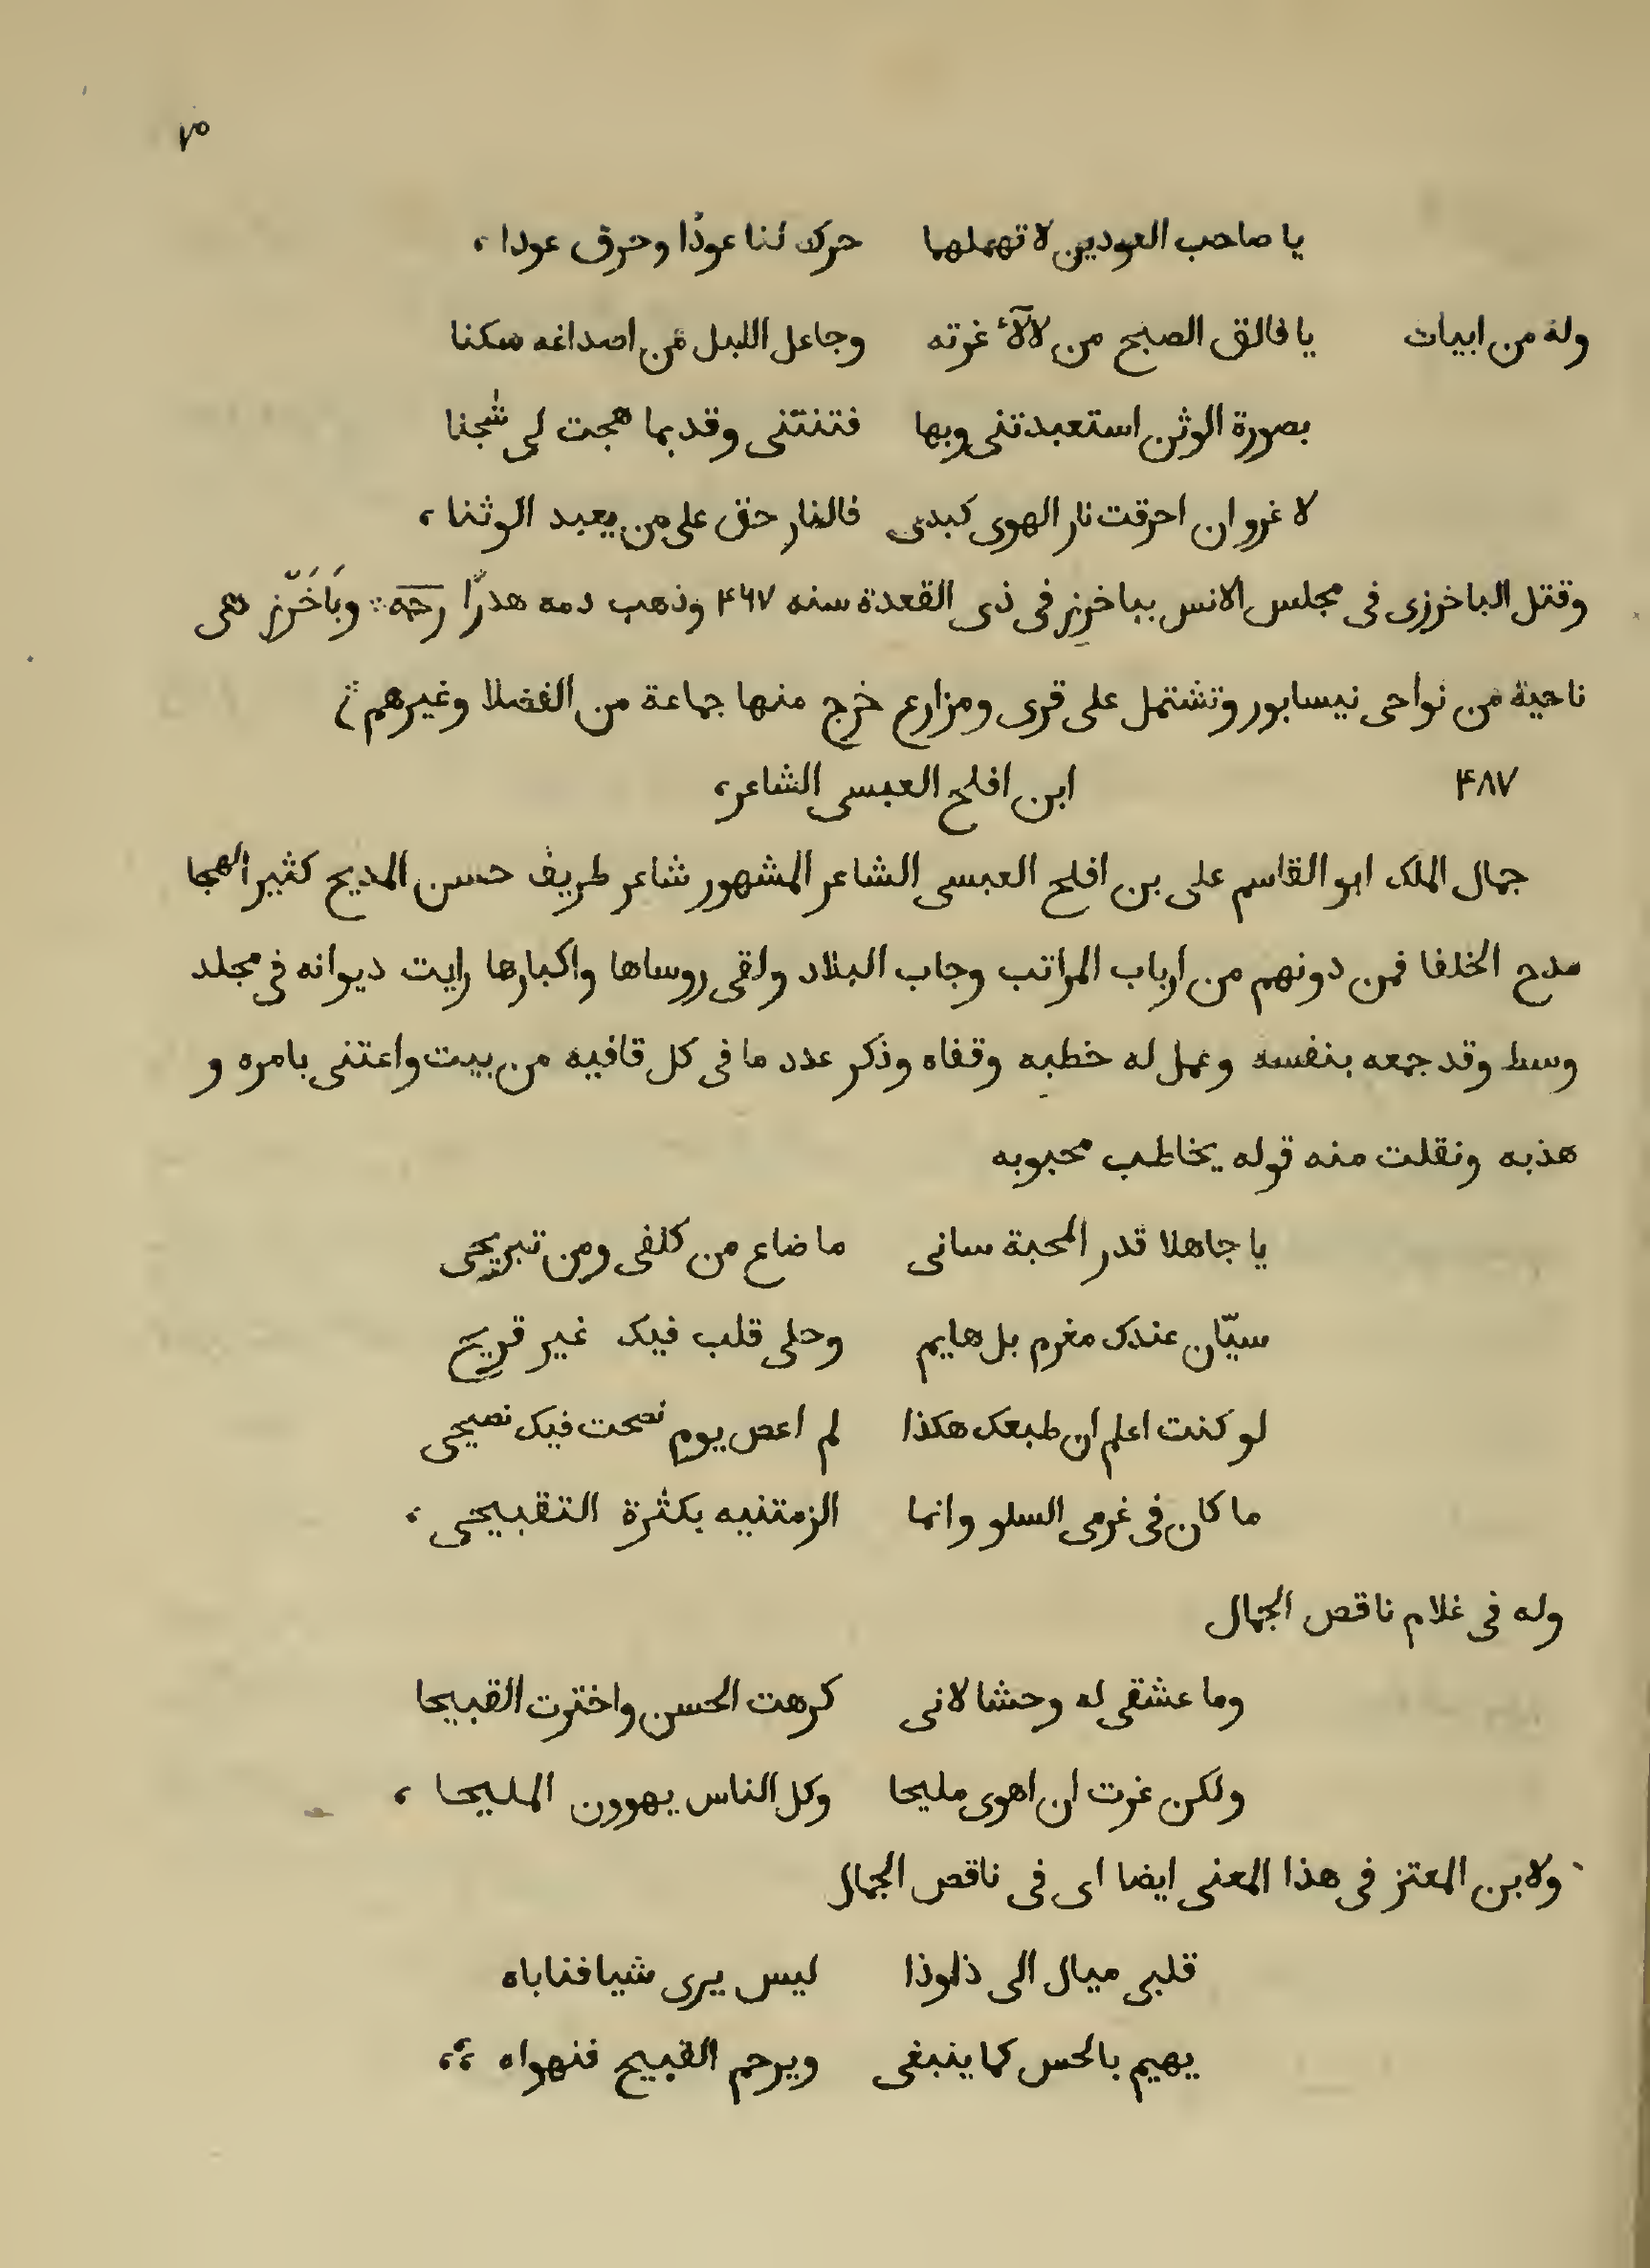 ٢٥
يا صاحب العودين لا تهملهما حرك لنا عودًا وحرق عودا،
وله من ابيات يا فالق الصبح من لالآء غرته وجاعل الليل من اصداغه سكنا
بصورة الوثن استعبدتنى وبها فتنتنى وقديما هجت لى شجنا
لا غرو ان احرقت نار الهوى كبدى فالنار حق على من يعبد الوثنا،
وقتل الباخرزى فى مجلس الانس بباخرز فى ذى القعدة سنه ۴۶۷ وذهب دمه هدرًا رحه وبَاخَرْز هى
ناحية من نواحى نيسابور وتشتمل على قرى ومزارع خرج منها جماعة من الفضلا وغيرهم
۴۸۷ ابن افلح العبسى الشاعر،
جمال الملك ابو القاسم على بن افلح العبسى الشاعر المشهور شاعر ظريف حسن المديح كثير الهجا
مدح الخلفا فمن دونهم من ارباب المراتب وجاب البلاد ولقى روساها واكبارها رايت ديوانه فى مجلد
وسط وقد جمعه بنفسه وعمل له خطبه وقفاه وذكر عدد ما فى كل قافيه من بيت واعتنى بامره و
هذبه ونقلت منه قوله يخاطب محبوبه
يا جاهلا قدر المحبة سانى ما ضاع من كلفى ومن تبريحى
سيّان عندك مغرم بل هايم وحلى قلب فيك غير قريح
لو كنت اعلم ان طبعك هكذا لم اعص يوم نصحت فيك نصيحى
ما كان فى غرمى السلو وانما الزمتنيه بكثرة التقبيحى،
وله فى غلام ناقص الجمال
وما عشقى له وحشا لانى كرهت الحسن واخترت القبيحا
ولكن غرت ان اهوى مليحا وكل الناس يهوون المليحا،
ولابن المعتز فى هذا المعنى ايضا اى فى ناقص الجمال
قلبى ميال الى ذا وذا ليس يرى شيا فناباه
يهيم بالحس كما ينبغى ويرحم القبيح فنهواه،،